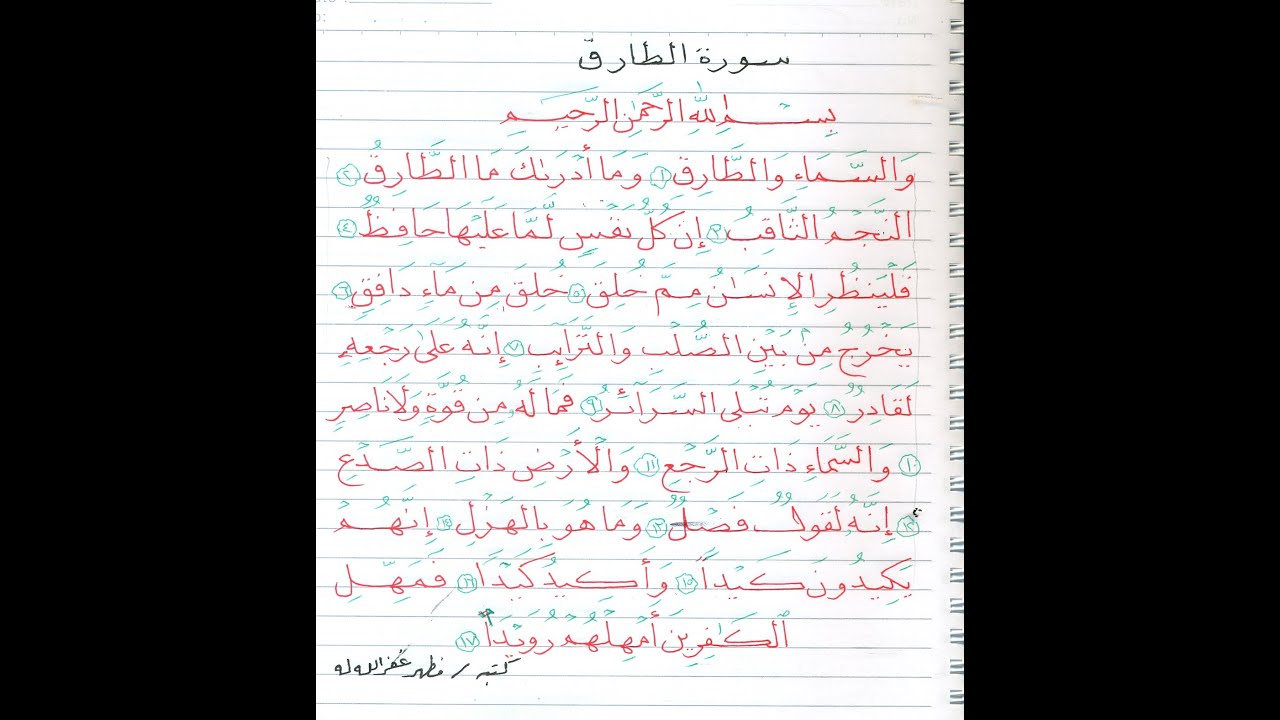 سورة الطارق
بِسْمِ اللَّهِ الرَّحْمَٰنِ الرَّحِيمِ
وَالسَّمَاءِ وَالطَّارِقِ ١ وَمَا أَدْرَىٰكَ مَا الطَّارِقُ ٢
النَّجْمُ الثَّاقِبُ ٣ إِن كُلُّ نَفْسٍ لَّمَّا عَلَيْهَا حَافِظٌ ٤
فَلْيَنظُرِ الْإِنسَٰنُ مِمَّ خُلِقَ ٥ خُلِقَ مِن مَّآءٍ دَافِقٍ ٦
يَخْرُجُ مِنْ بَيْنِ الصُّلْبِ وَالتَّرَآئِبِ ٧ إِنَّهُ عَلَىٰ رَجْعِهِ
لَقَادِرٌ ٨ يَوْمَ تُبْلَى السَّرَآئِرُ ٩ فَمَا لَهُ مِن قُوَّةٍ وَلَا نَاصِرٍ
١٠ وَالسَّمَاءِ ذَاتِ الرَّجْعِ ١١ وَالْأَرْضِ ذَاتِ الصَّدْعِ
١٢ إِنَّهُ لَقَوْلٌ فَصْلٌ ١٣ وَمَا هُوَ بِالْهَزْلِ ١٤ إِنَّهُمْ
يَكِيدُونَ كَيْدًا ١٥ وَأَكِيدُ كَيْدًا ١٦ فَمَهِّلِ
الْكَٰفِرِينَ أَمْهِلْهُمْ رُوَيْدًا ١٧
كتبه / مظهر غفر الله له